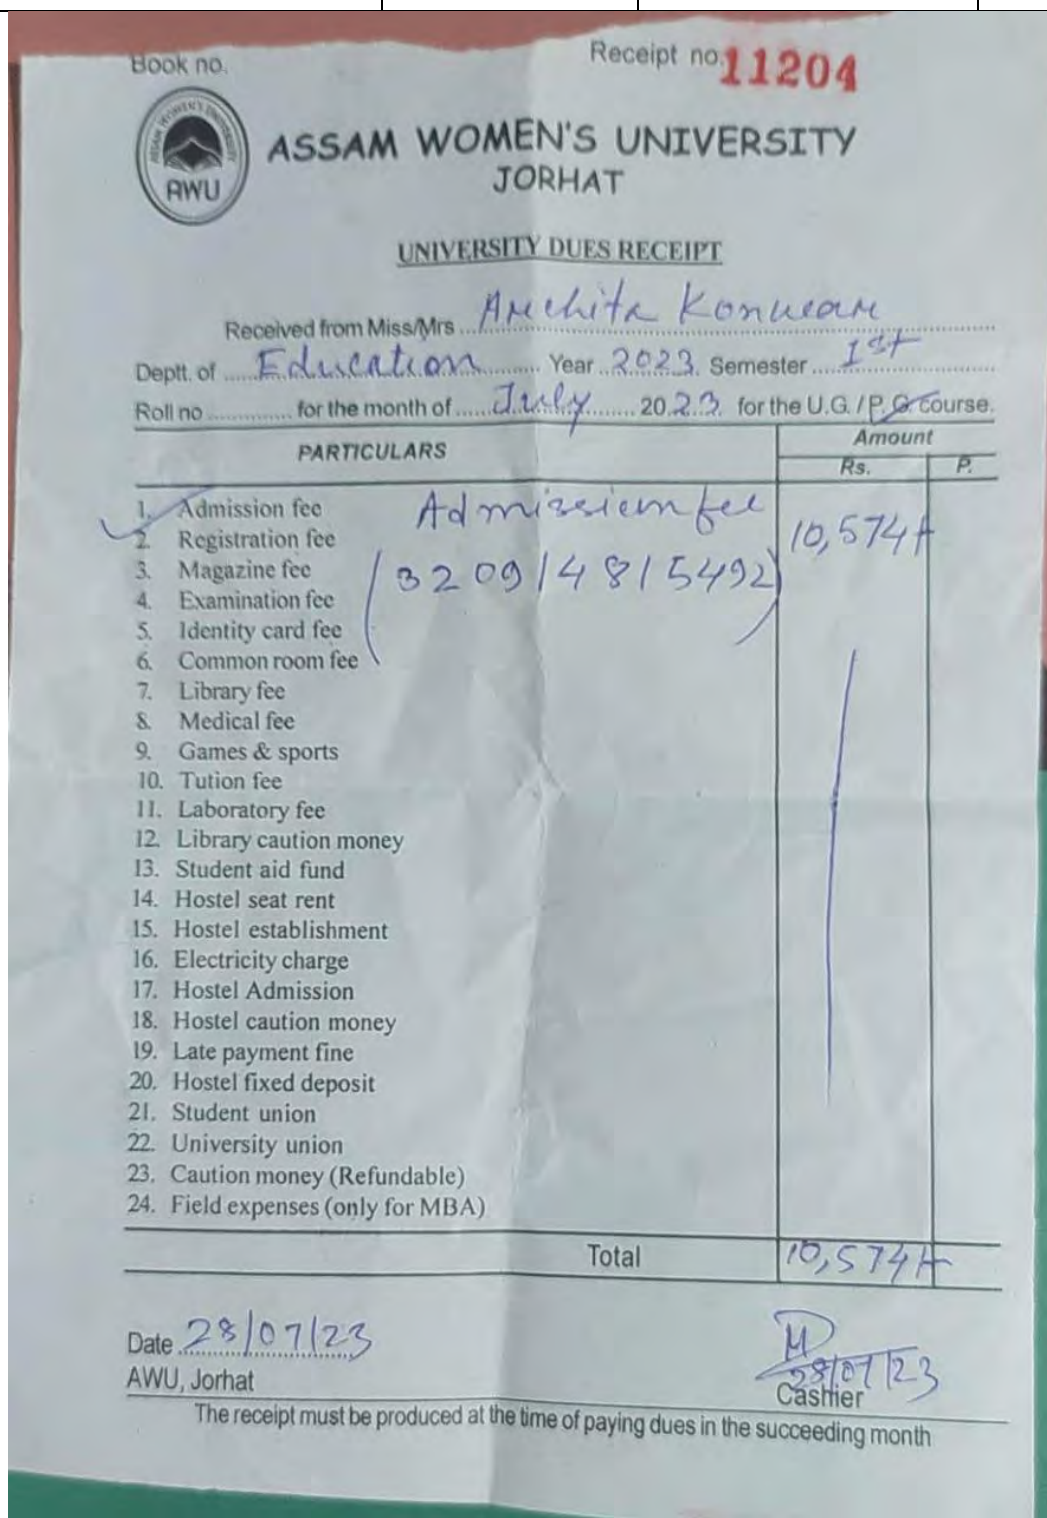 Book no.
Receipt no. 11204
ASSAM WOMEN'S UNIVERSITY
AWU
ASSAM WOMEN'S UNIVERSITY
JORHAT
UNIVERSITY DUES RECEIPT
Received from Miss/Mrs ... Archita Konwar
Deptt. of ... Education ... Year ... 2023 Semester ... 1st
Roll no ............. for the month of ... July ... 2023 for the U.G. / P.G. course.
PARTICULARS Amount
Rs. P.
1. Admission fee Admission fee 10,574/-
2. Registration fee
3. Magazine fee (3209/48/5492)
4. Examination fee
5. Identity card fee
6. Common room fee
7. Library fee
8. Medical fee
9. Games & sports
10. Tution fee
11. Laboratory fee
12. Library caution money
13. Student aid fund
14. Hostel seat rent
15. Hostel establishment
16. Electricity charge
17. Hostel Admission
18. Hostel caution money
19. Late payment fine
20. Hostel fixed deposit
21. Student union
22. University union
23. Caution money (Refundable)
24. Field expenses (only for MBA)
Total 10,574/-
Date 28/07/23
AWU, Jorhat
28/07/23
Cashier
The receipt must be produced at the time of paying dues in the succeeding month